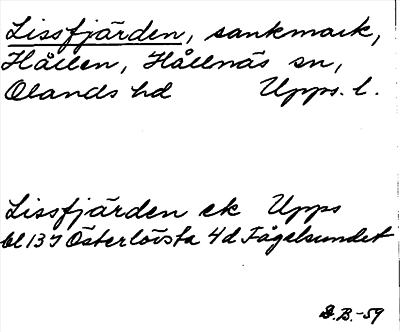 Lissfjärden, sankmark,
Hållen, Hållnäs sn,
Olands hd Upps. l.
Lissfjärden ek Upps
bl 137 Österlövsta 4d Fågelsundet
D.B.-59